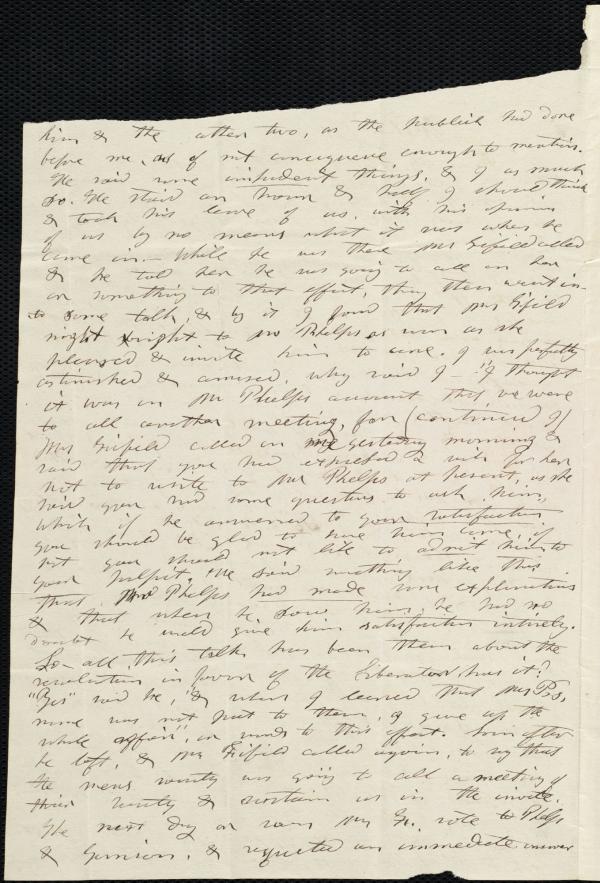 him & the other two, as the publick had done
before me, as of not consequence enough to mention.
He said some impudent things, & I as much
so. He staid an hour & half I should think
& took his leave of us, with his opinion
of us by no means what it was when he
came in. — While he was there Mrs Fifield called
& he told her he was going to call on her
or something to that effect, they then went in-
to some talk, & by it I found that Mrs Fifield
might write to Mr Phelps as soon as she
pleased & invite him to come. I was perfectly
astonished & amused, why said I — "I thought
it was on Mr Phelps account that we were
to call another meeting, for (continued I)
Mrs Fifield called on me yesterday morning &
said that you had expressed a wish for her
not to write to Mr Phelps at present, as she
said you had some questions to ask him,
which if he answered to your satisfaction
you should be glad to have him come, if
not you should not like to admit him to
your pulpit." He said something like this
that Mr Phelps had made some explanations
& that when he saw him, he had no
doubt he would give him satisfaction intirely.
So all this talk has been then about the
resolution in favor of the Liberator has it?
"Yes" said he, "& when I learned that Mrs P's,
name was not put to them, I give up the
whole affair", or words to this effect. Soon after
he left, & Mrs Fifield called again, to say that
the mens society was going to call a meeting of
their society & sustain us in the invite.
The next day or so Mrs F. wrote to Phelps
& Garrison, & requested an immediate answer